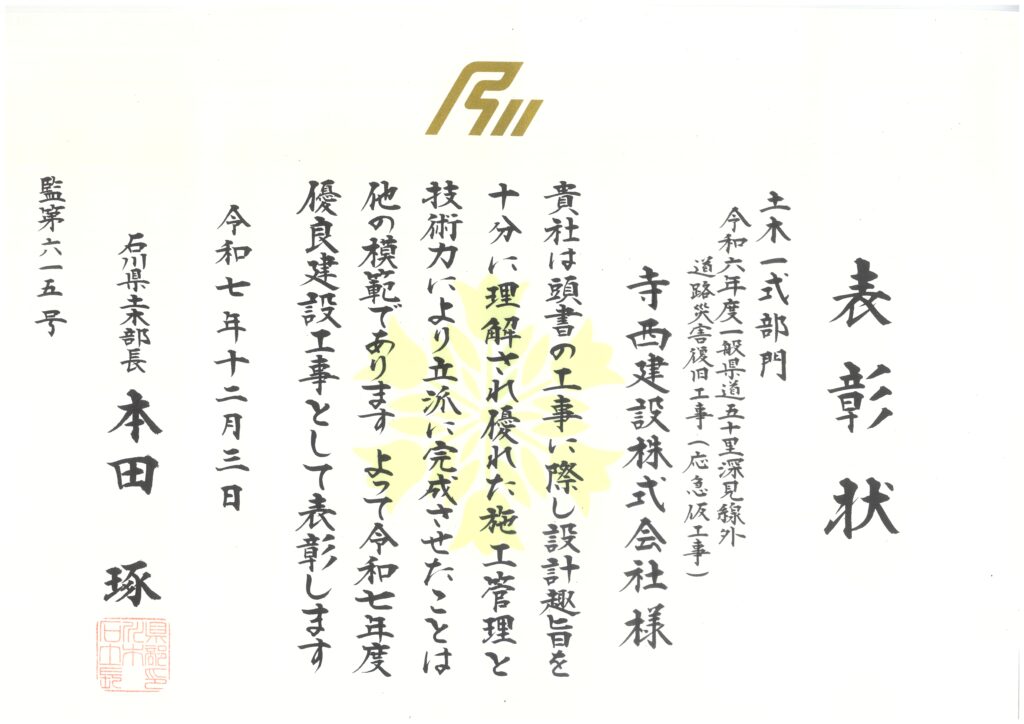 表彰状
土木一式部門
令和六年度一般県道五十里深見線外
道路災害復旧工事(応急仮工事)
寺西建設株式会社様
貴社は頭書の工事に際し設計趣旨を
十分に理解され優れた施工管理と
技術力により立派に完成させたことは
他の模範であります よって令和七年度
優良建設工事として表彰します
令和七年十二月三日
石川県土木部長 本田 琢
監第六一五号